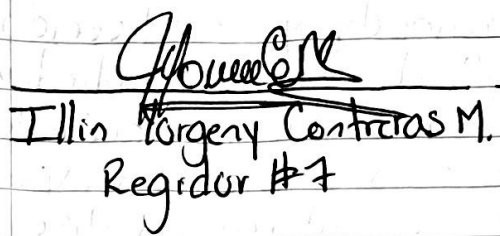 Illin Yorgeny Contreras M.
Regidor #7